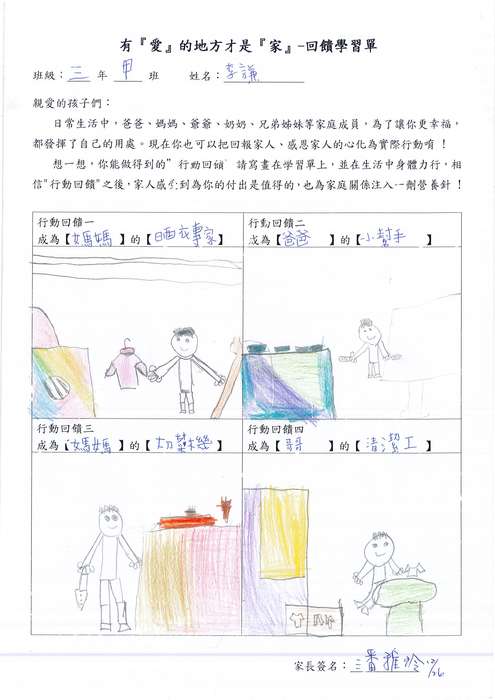 有『愛』的地方才是『家』-回饋學習單
班級：三 年 甲 班 姓名：李謙
親愛的孩子們：
日常生活中，爸爸、媽媽、爺爺、奶奶、兄弟姊妹等家庭成員，為了讓你更幸福，
都發揮了自己的用處。現在你也可以把回報家人、感恩家人的心化為實際行動唷！
想一想，你能做得到的"行動回饋"請寫畫在學習單上，並在生活中身體力行，相
信"行動回饋"之後，家人感受到為你的付出是值得的，也為家庭關係注入一劑營養針！
行動回饋一
成為【媽媽】的【晒衣專家】
行動回饋二
成為【爸爸】的【小幫手】
行動回饋三
成為【媽媽】的【切菜機】
行動回饋四
成為【哥哥】的【清潔工】
家長簽名：潘雅玲 12/26